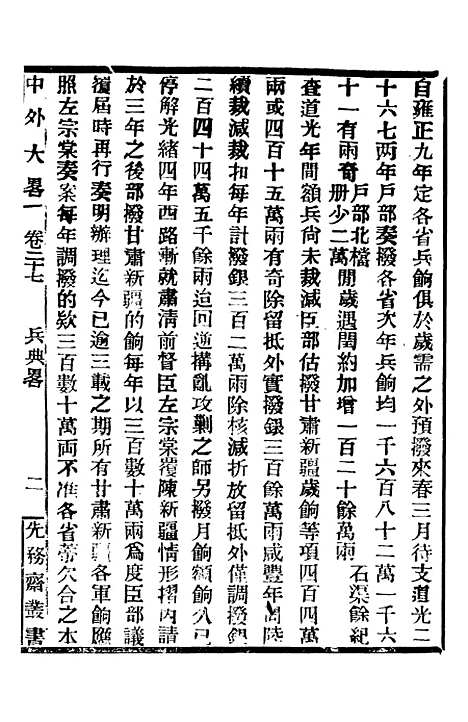 自雍正九年定各省兵餉俱於歲需之外預撥來春三月待支道光二
十六七兩年戶部奏撥各省次年兵餉均一千六百八十二萬一千六
十一有兩奇戶部北檔冊少二萬閒歲遇閏約加增一百二十餘萬兩 石渠餘紀
查道光年間額兵尚未裁減臣部估撥甘肅新疆歲餉等項四百四萬
兩或四百十五萬兩有奇除留抵外實撥銀三百餘萬兩咸豐年間陸
續裁減裁扣每年計撥銀三百二萬兩除核減折放留抵外僅調撥銀
二百四十四萬五千餘兩迨回逆構亂攻剿之師另撥月餉額餉久已
停解光緒四年西路漸就肅清前督臣左宗棠覆陳新疆情形摺內請
於三年之後部撥甘肅新疆的餉每年以三百數十萬兩為度臣部議
覆屆時再行奏明辦理迄今已逾三載之期所有甘肅新疆各軍餉應
照左宗棠奏案每年調撥的欵三百數十萬両不准各省蒂欠合之本
中外大畧一 卷三十七 兵典畧 二 先務齋叢書